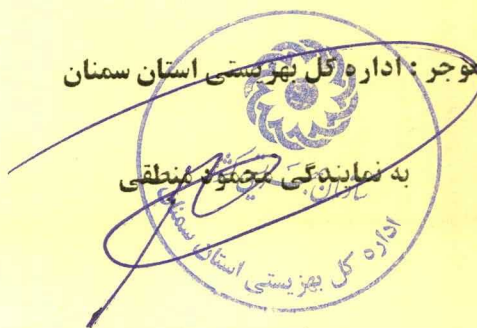 موجر : اداره کل بهزیستی استان سمنان
به نمایندگی محمود منطقی
سازمان بهزیستی
اداره کل بهزیستی استان سمنان